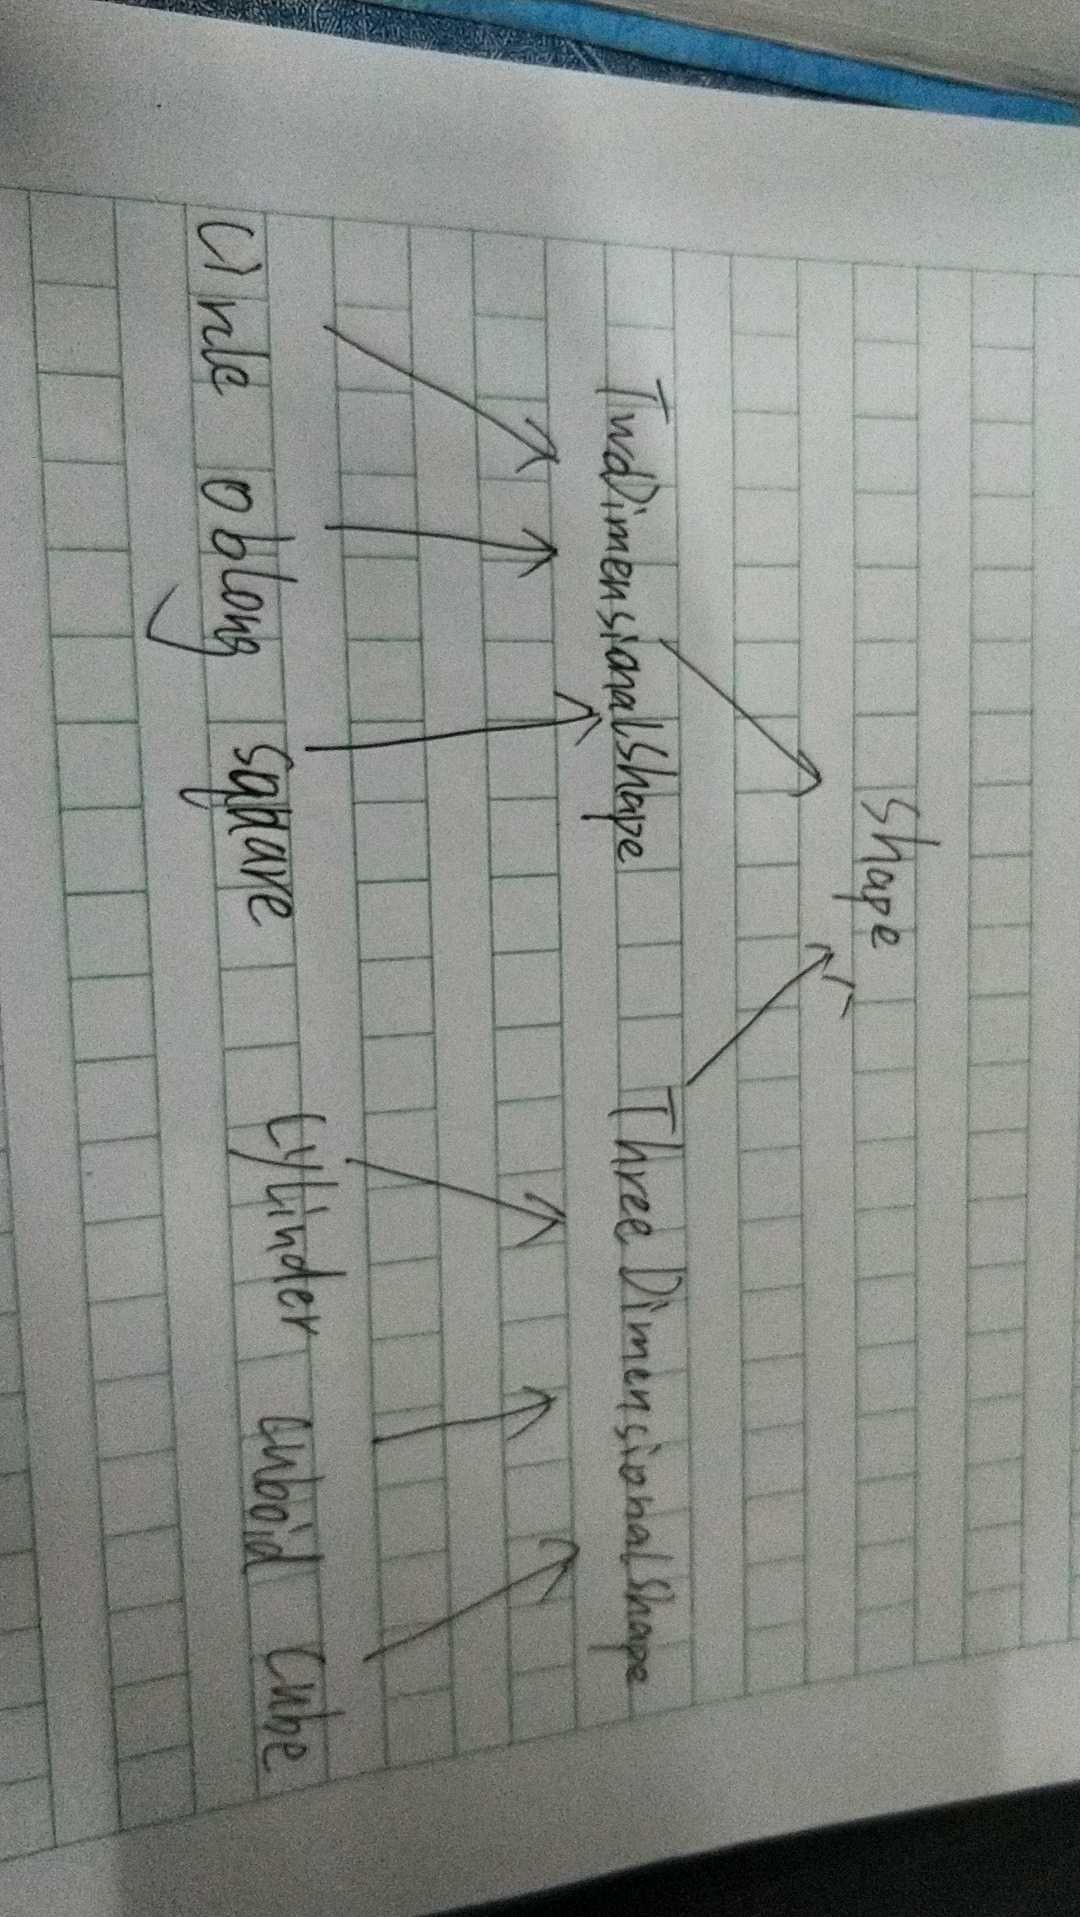 Shape
TwoDimensionalShape ThreeDimensionalShape
Circle oblong square Cylinder cuboid Cube